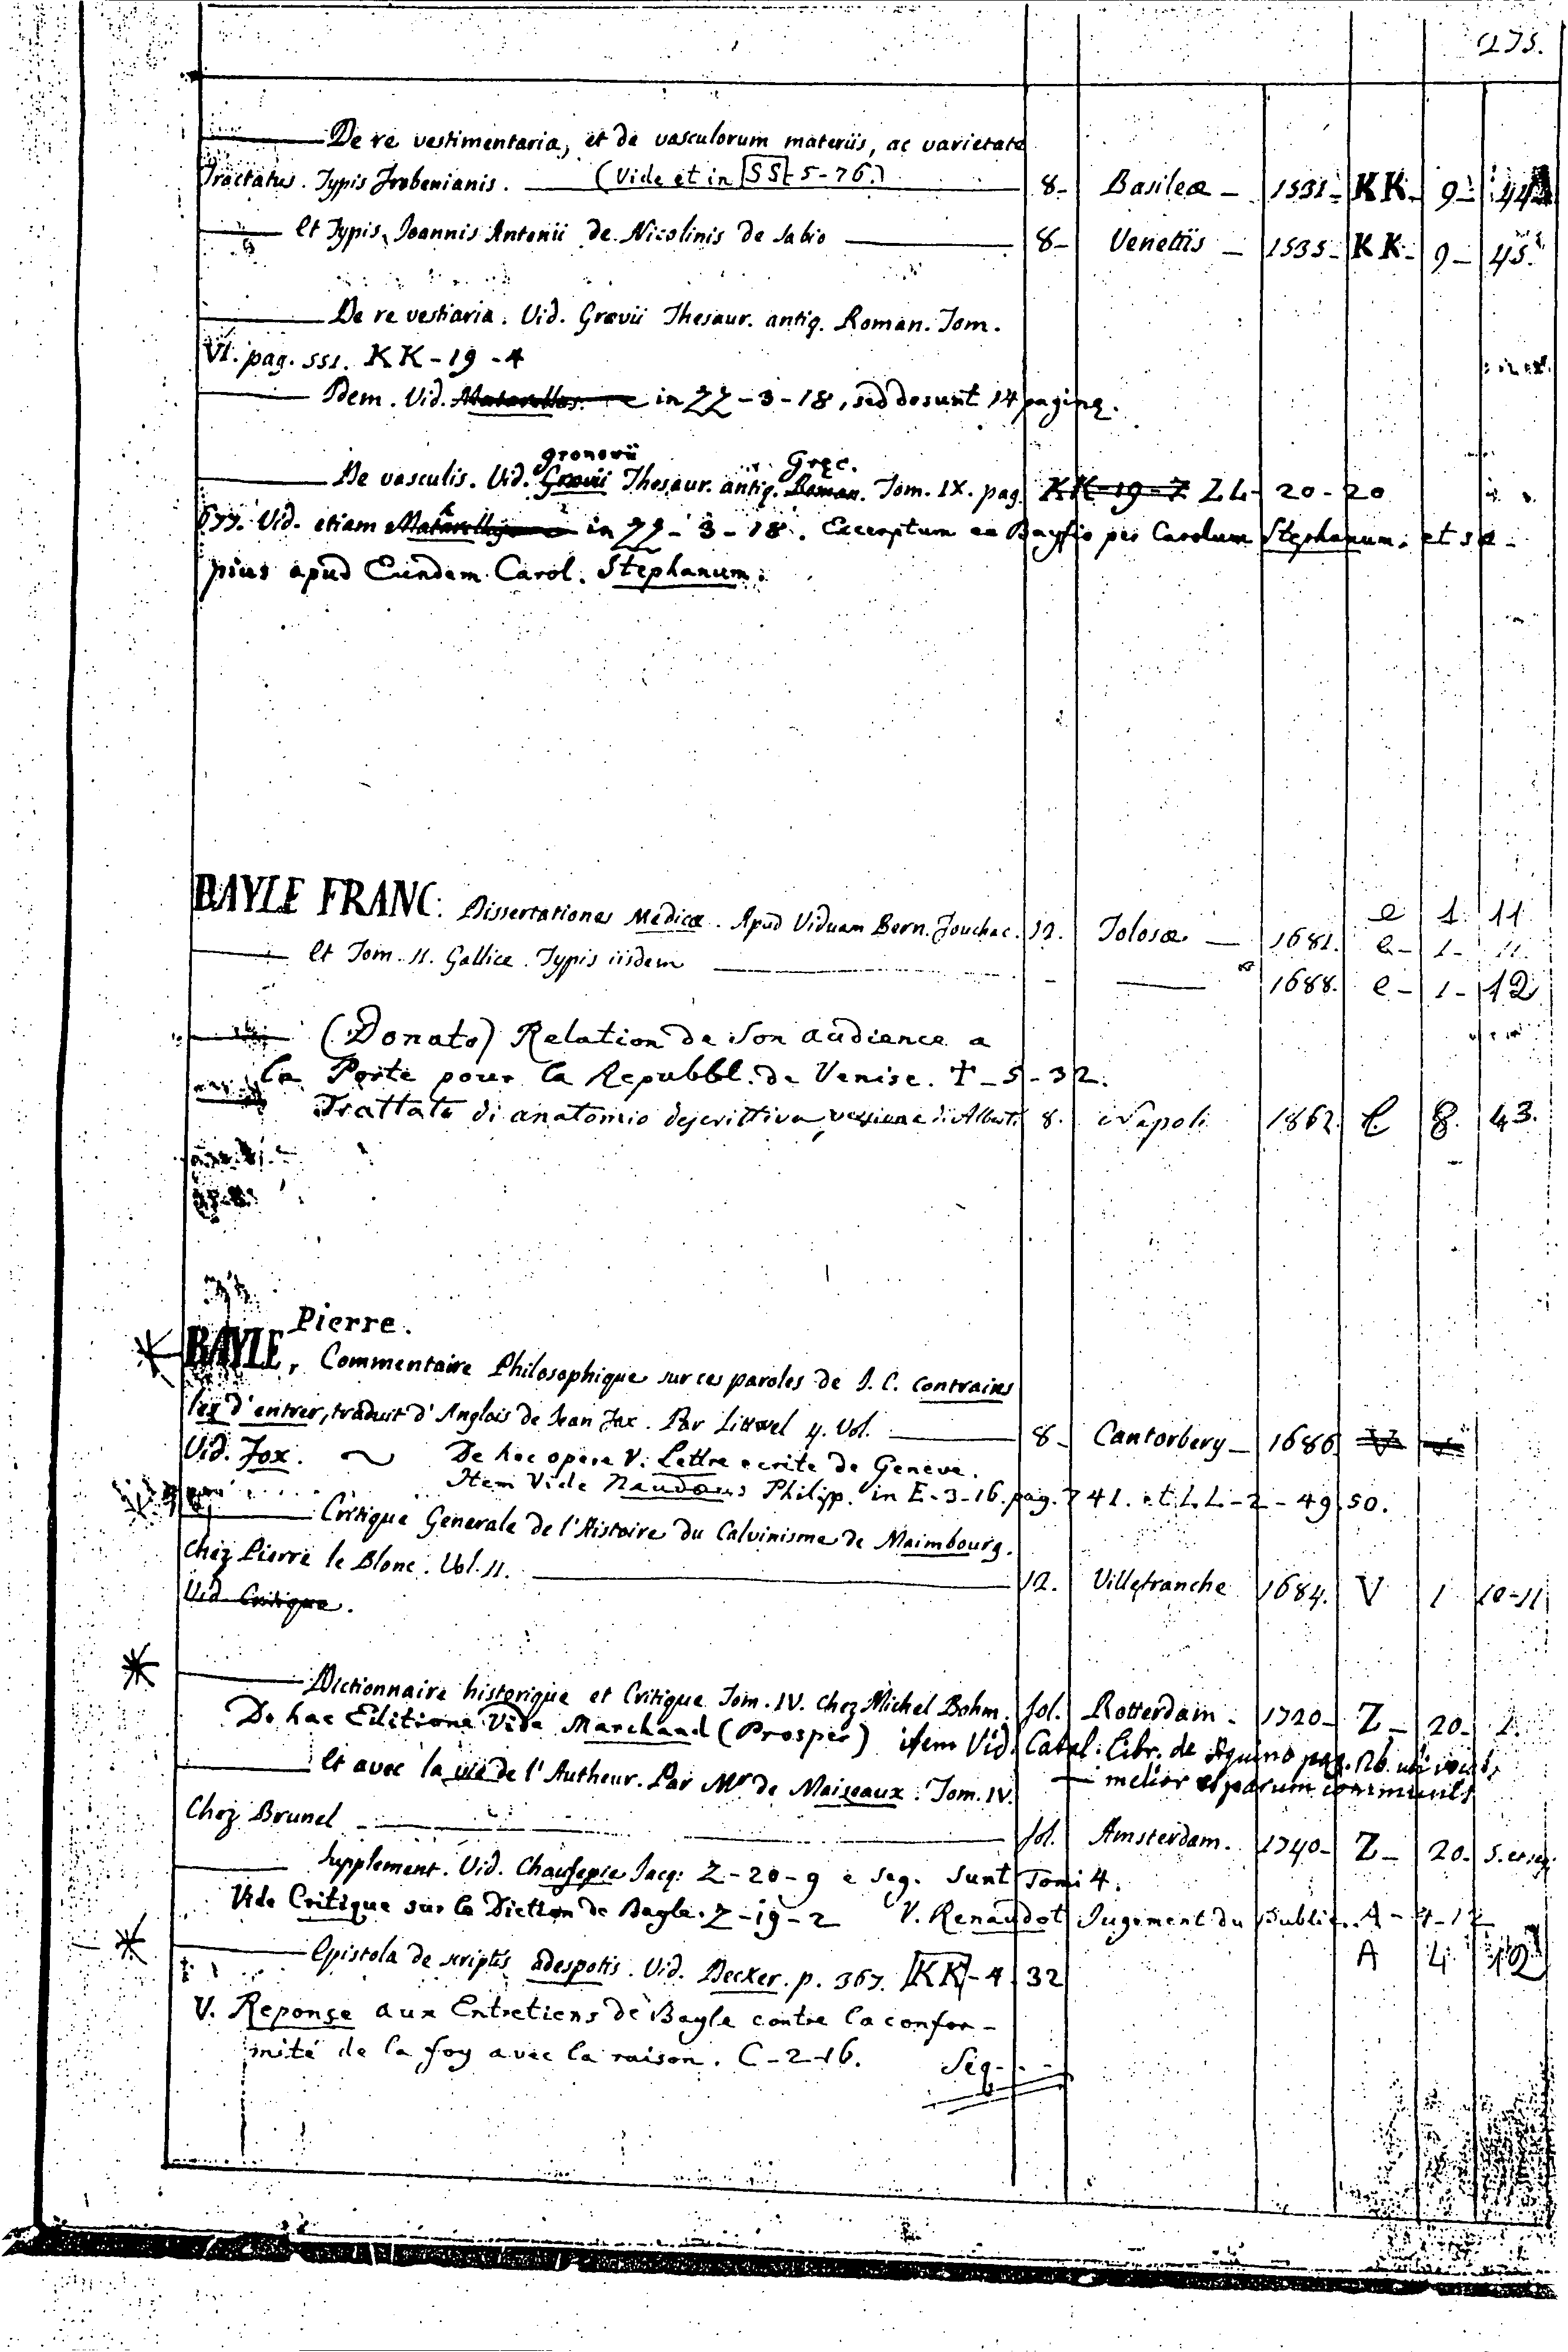 275.
—— De re vestimentaria, et de vasculorum materiis, ac varietate
Tractatus. Typis Frobenianis. —— (Vide et in SS-5-76.) 8- Basileæ - 1531- KK- 9- 44
—— Et Typis Joannis Antonii de Nicolinis de Sabio —— 8- Venetiis - 1535- KK- 9- 45.
—— De re vestiaria. Vid. Grævii Thesaur. antiq. Roman. Tom.
VI. pag. 551. KK-19-4
—— Idem. Vid. in ZZ-3-18, sed desunt 14 paginę.
gronovii Gręc.
—— De vasculis. Vid. Grævii Thesaur. antiq. Roman. Tom. IX. pag. KK-19-7 LL-20-20
677. Vid. etiam in ZZ-3-18. Excerptum ex Bayfio per Carolum Stephanum. et sæ-
pius apud Eundem Carol. Stephanum.
BAYLE FRANC: Dissertationes Medicæ. Apud Viduam Bern. Fouchac. 12. Tolosæ — 1681. e 1. 11
e- 1- 11.
—— Et Tom. II. Gallice. Typis iisdem —— - —— 1688. e- 1- 12
—— (Donato) Relation de Son audience a
la Porte pour la Repubbl. de Venise. †-5-32.
Trattato di anatomia descrittiva, versione di Alberti 8. Napoli 1862. 8. 43.
Pierre.
BAYLE, Commentaire Philosophique sur ces paroles de J. C. contrains
les d'entrer, traduit d'Anglois de Jean Fox. Par Littwel 4. Vol. —— 8- Cantorbery - 1686 V
Vid. Fox. ~ De hoc opere V. Lettre ecrite de Geneve.
Item Vide Naudæus Philipp. in E-3-16. pag. 741. et LL-2-49.50.
—— Critique Generale de l'Histoire du Calvinisme de Maimbourg.
chez Pierre le Blanc. Vol. II. —— 12. Villefranche 1684. V 1 10-11
Vid. Critique.
—— Dictionnaire historique et Critique Tom. IV. chez Michel Bohm. fol. Rotterdam - 1720- Z- 20- 1.
De hac Editione Vide Marchand (Prosper) item Vid. Catal. Libr. de Aquino pag. 126.
—— Et avec la vie de l'Autheur. Par Mr de Maizeaux. Tom. IV. — melior et parum
Chez Brunel —— fol. Amsterdam. 1740- Z- 20- 5. et seq.
—— Supplement. Vid. Chaufepie Jacq: Z-20-9 e seg. Sunt Tomi 4.
Vide Critique sur le Diction de Bayle. Z-19-2 V. Renaudot Jugement du Public. A-4-12
A 4. 12
—— Epistola de scriptis adespotis. Vid. Decker. p. 367. KK-4.32
V. Reponse aux Entretiens de Bayle contre la confor-
mité de la foy avec la raison. C-2-16. Seq.